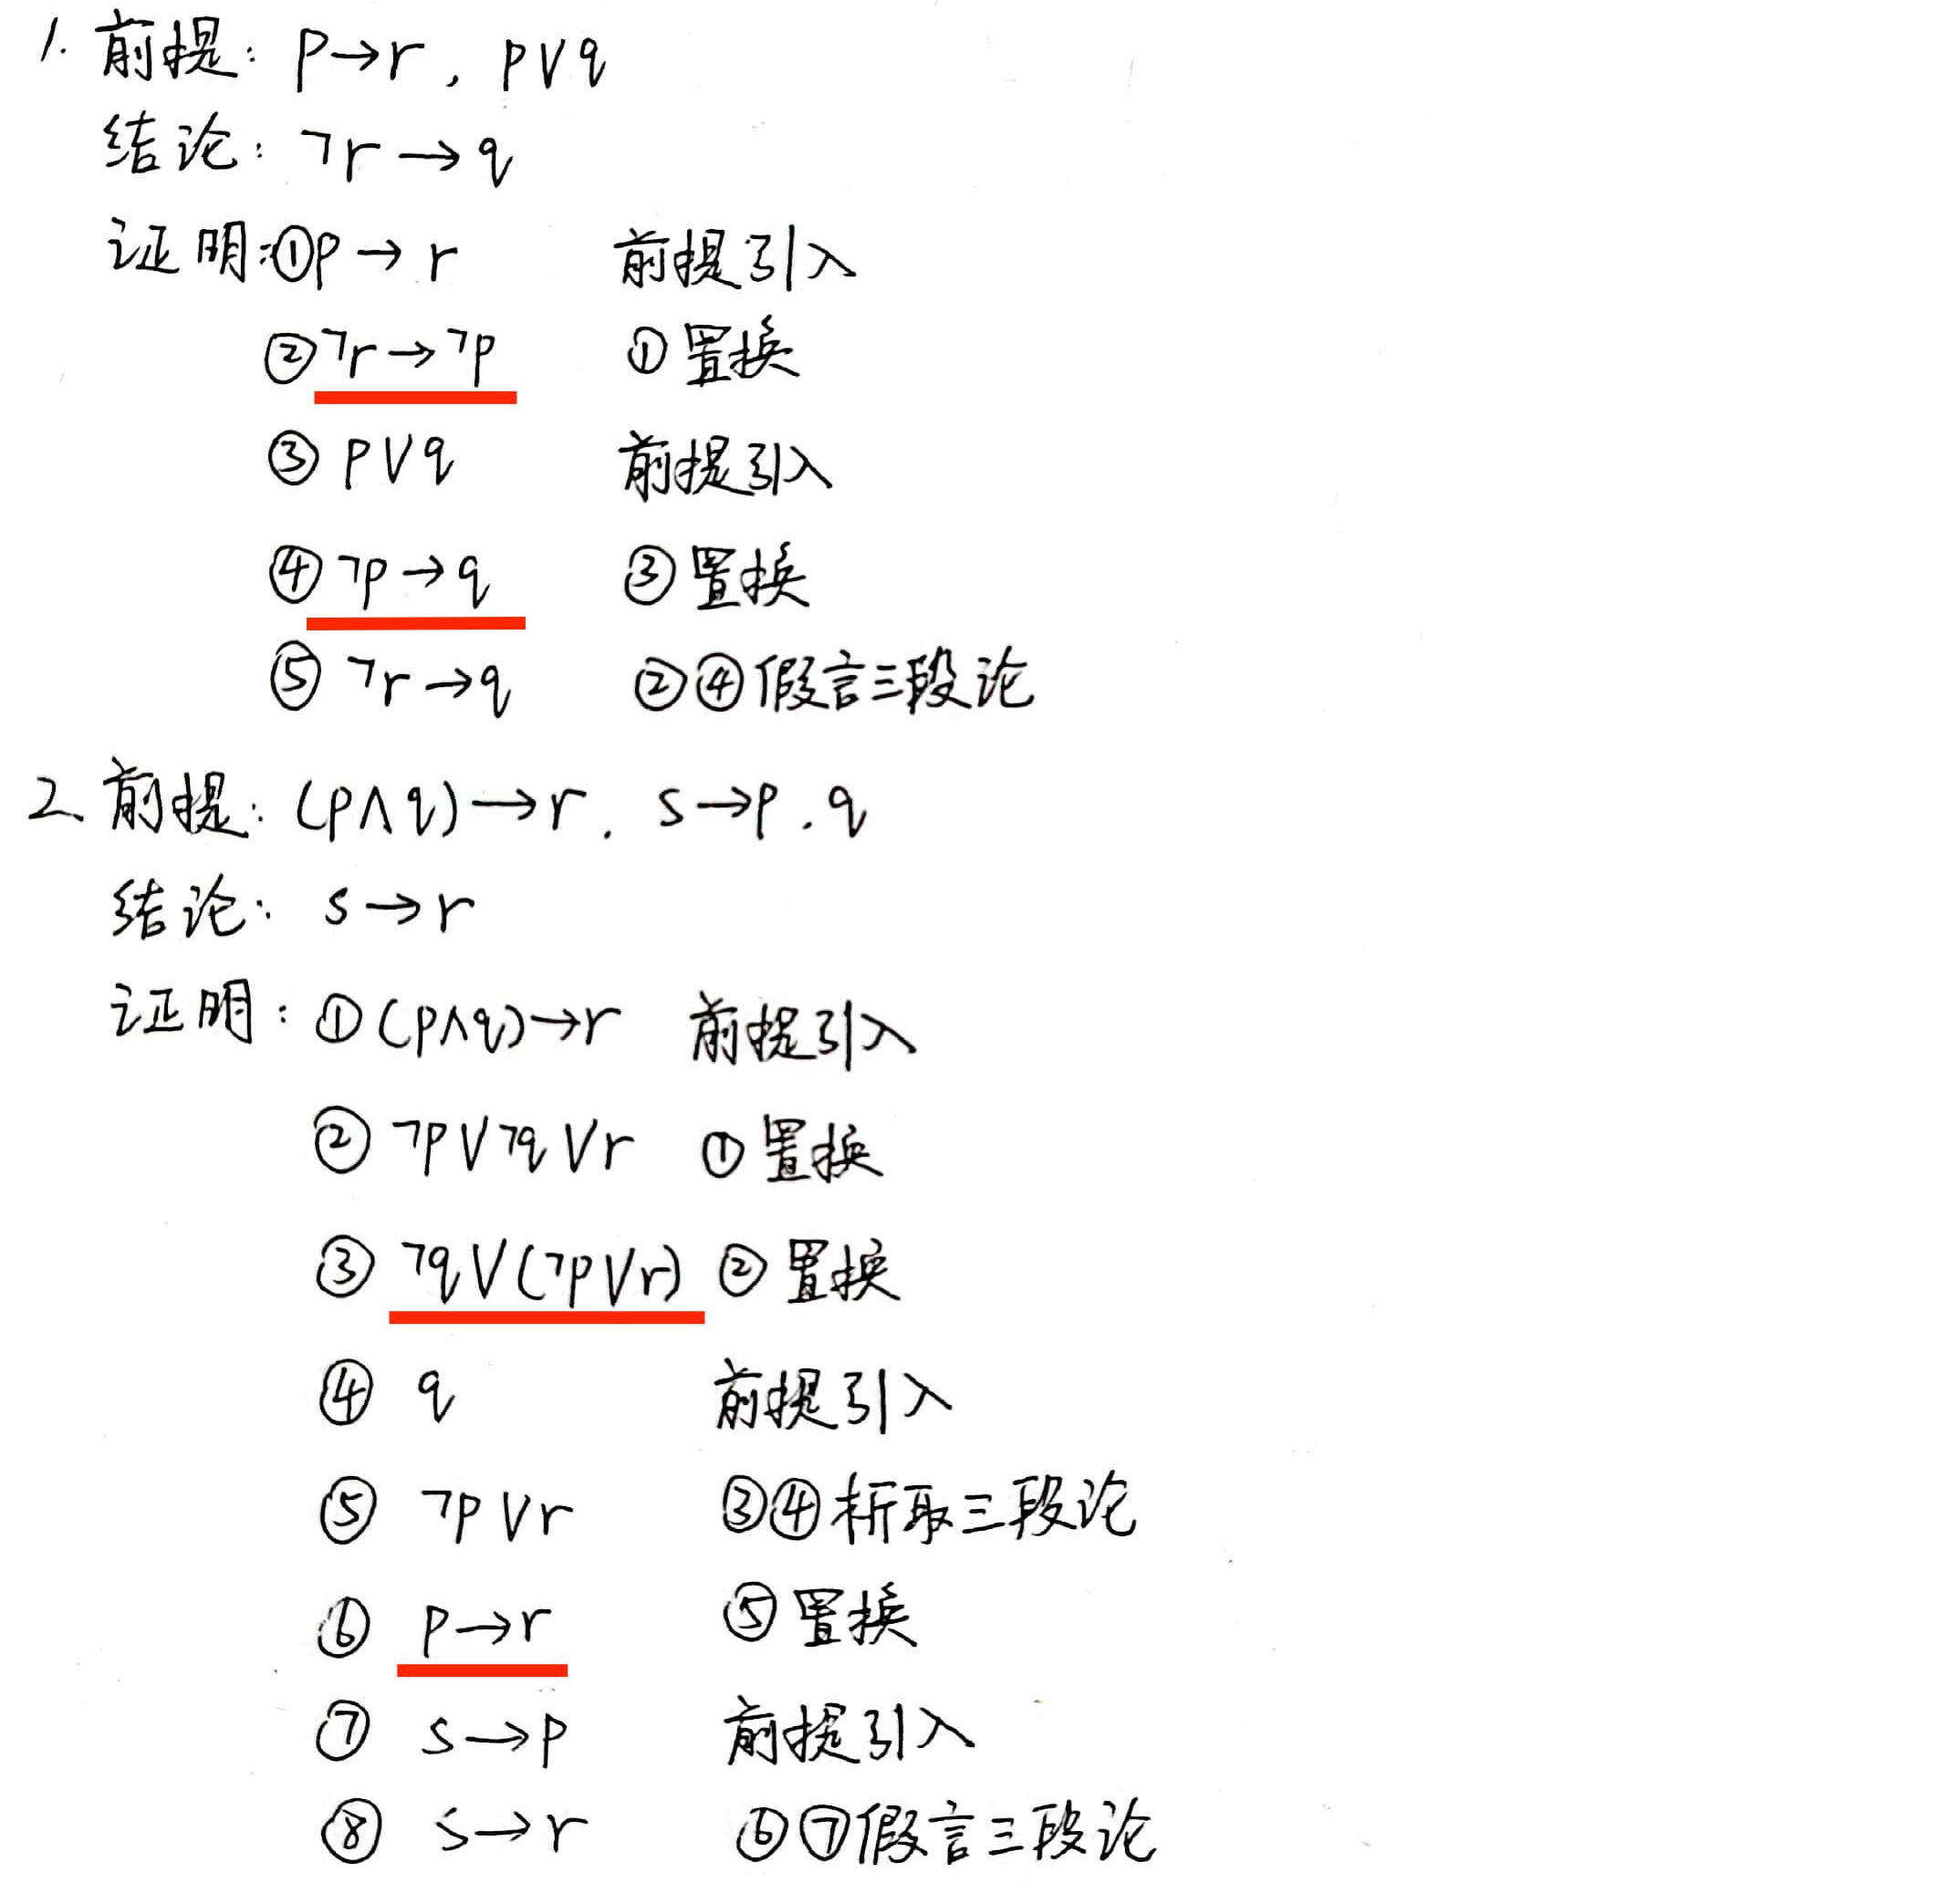 1. 前提: p→r, p∨q
结论: ¬r→q
证明:①p→r 前提引入
②¬r→¬p ①置换
③p∨q 前提引入
④¬p→q ③置换
⑤¬r→q ②④假言三段论
2. 前提: (p∧q)→r. s→p. q
结论: s→r
证明: ①(p∧q)→r 前提引入
②¬p∨¬q∨r ①置换
③¬q∨(¬p∨r) ②置换
④q 前提引入
⑤¬p∨r ③④析取三段论
⑥p→r ⑤置换
⑦s→p 前提引入
⑧s→r ⑥⑦假言三段论